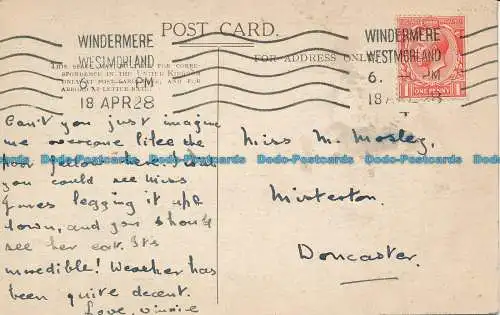 POST CARD.
WINDERMERE
WESTMORLAND
6. PM
18 APR 28
WINDERMERE
WESTMORLAND
6. PM
18 APR 28
THIS SPACE MAY BE USED FOR CORRES-
PONDENCE IN THE UNITED KINGDOM
FOR ADDRESS ONLY
ONE PENNY
Can't you just imagine
me overcome like the
poor fellow here. I wish
you could see Miss
Jones legging it up &
down, and you should
see her eat. It's
incredible! Weather has
been quite decent.
Love, Winnie
Miss M. Mosley,
Misterton.
Doncaster.
Dodo-Postcards Dodo-Postcards Dodo-Postcards Dodo-Postcards Dodo-Postcards